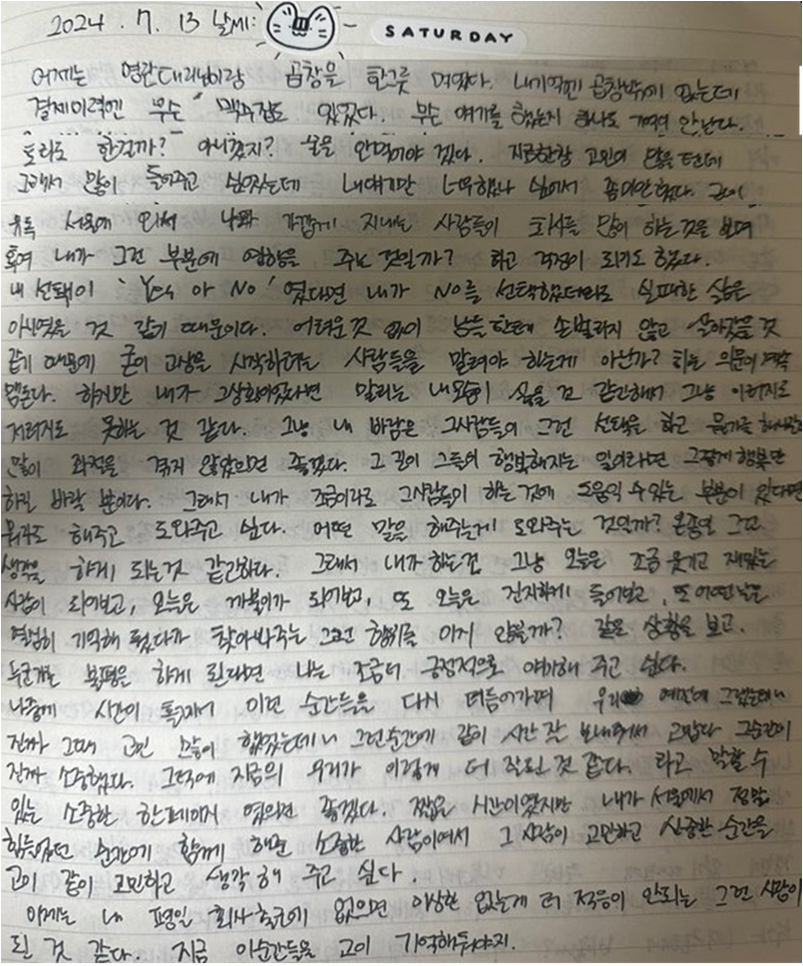 2024. 7. 13 날씨: SATURDAY
어제는 영관대리님이랑 곱창을 한그릇 먹었다. 내기억엔 곱창밖에 없는데
결제이력엔 무슨 맥주집도 있었다. 무슨 얘기를 했는지 하나도 기억 안난다.
토라도 한걸까? 아니겠지? 술을 안먹어야 겠다. 지금한창 고민이 많을 텐데
그래서 많이 들어주고 싶었는데 내얘기만 너무했나 싶어서 좀미안했다.
유독 서울에 와서 나와 가깝게 지내는 사람들이 퇴사를 많이 하는것을 보며
혹여 내가 그런 부분에 영향을 주는 것일까? 하고 걱정이 되기도 했다.
내 선택이 'Yes or No' 였다면 내가 No를 선택했더라도 실패한 삶은
아니었을 것 같기 때문이다. 어려운것 없이 남들한테 손벌리지 않고 살아갔을 것
같기 때문에 굳이 고생을 시작하려는 사람들을 말려야 하는게 아닌가? 하는 의문이 계속
맴돈다. 하지만 내가 그상황이었다면 말리는 내모습이 싫을 것 같긴해서 그냥 이러지도
저러지도 못하는 것 같다. 그냥 내 바람은 그사람들이 그런 선택을 하고 뭔가를 해나갈때
많이 좌절을 겪지 않았으면 좋겠다. 그 길이 그들의 행복해지는 일이라면 그렇게 행복만
하길 바랄 뿐이다. 그래서 내가 조금이라도 그사람들이 하는것에 도움될 수 있는 부분이 있다면
뭐라도 해주고 도와주고 싶다. 어떤 말을 해주는게 도와주는 것일까? 온종일 그런
생각을 하게 되는것 같긴하다. 그래서 내가 하는건 그냥 오늘은 조금 웃기고 재밌는
사람이 되어보고, 오늘은 까불이가 되어보고, 또 오늘은 진지하게 들어보고, 또 어떤날은
열심히 기억해 뒀다가 찾아봐주는 그런 행위를 하게 않을까? 같은 상황을 보고.
누군가는 불평을 하게 된다면 나는 조금더 긍정적으로 얘기해 주고 싶다.
나중에 시간이 흘러서 이런 순간들을 다시 더듬어가며 우리 예전에 그랬는데
진짜 그때 고민 많이 했었는데 그런순간에 같이 시간 잘 보내줘서 고맙다 그순간이
진짜 소중했다. 그덕에 지금의 우리가 이렇게 더 잘된 것 같다. 라고 말할 수
있는 소중한 한페이지 였으면 좋겠다. 짧은 시간이였지만 내가 서울에서 정말
힘들었던 순간에 함께 해준 소중한 사람이여서 그 사람이 고민하고 신중한 순간을
고이 같이 고민하고 생각 해 주고 싶다.
이제는 내 평일 회사생활에 없으면 이상한 없는게 더 적응이 안되는 그런 사람이
된 것 같다. 지금 이순간들을 고이 기억해둬야지.